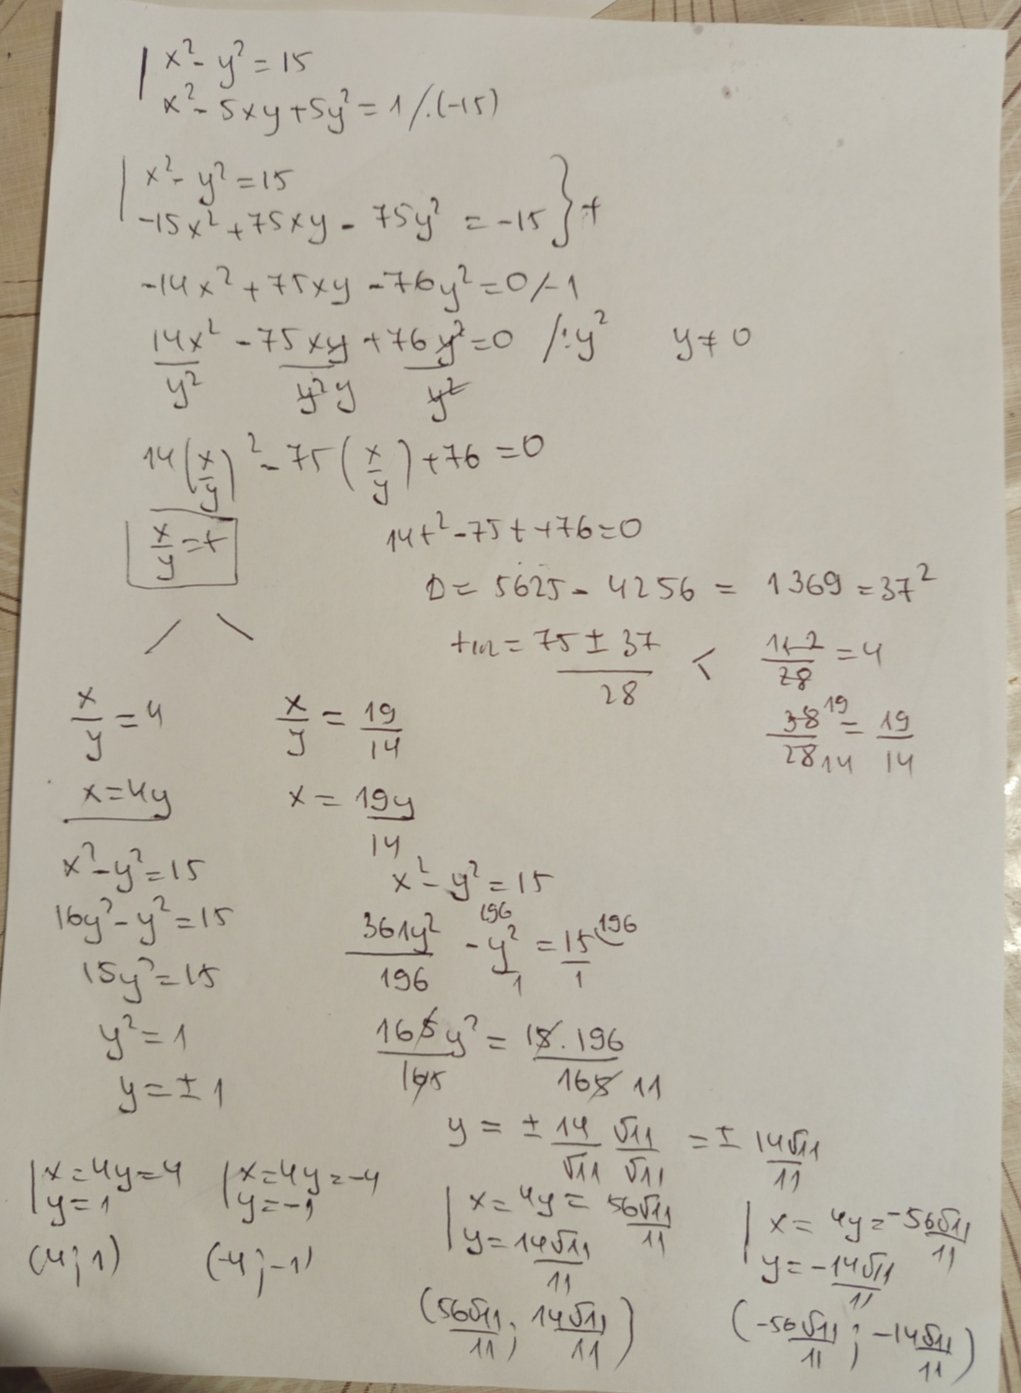 x² - y² = 15
x² - 5xy + 5y² = 1 /.(-15)
x² - y² = 15
-15x² + 75xy - 75y² = -15 } +
-14x² + 75xy - 76y² = 0 /-1
14x²/y² - 75xy/y²y + 76y²/y² = 0 /:y² y ≠ 0
14(x/y)² - 75(x/y) + 76 = 0
x/y = t
14t² - 75t + 76 = 0
D = 5625 - 4256 = 1369 = 37²
t1/2 = 75 ± 37 / 28 < 112/28 = 4
38/28 19/14 = 19/14
x/y = 4
x = 4y
x² - y² = 15
16y² - y² = 15
15y² = 15
y² = 1
y = ± 1
x = 4y = 4
y = 1
(4; 1)
x = 4y = -4
y = -1
(-4; -1)
x/y = 19/14
x = 19y/14
x² - y² = 15
361y²/196 - y²/1 196 = 15/1 196
165y²/165 = 15.196/165 11
y = ± 14/√11 √11/√11 = ± 14√11/11
x = 4y = 56√11/11
y = 14√11/11
(56√11/11; 14√11/11)
x = 4y = -56√11/11
y = -14√11/11
(-56√11/11; -14√11/11)